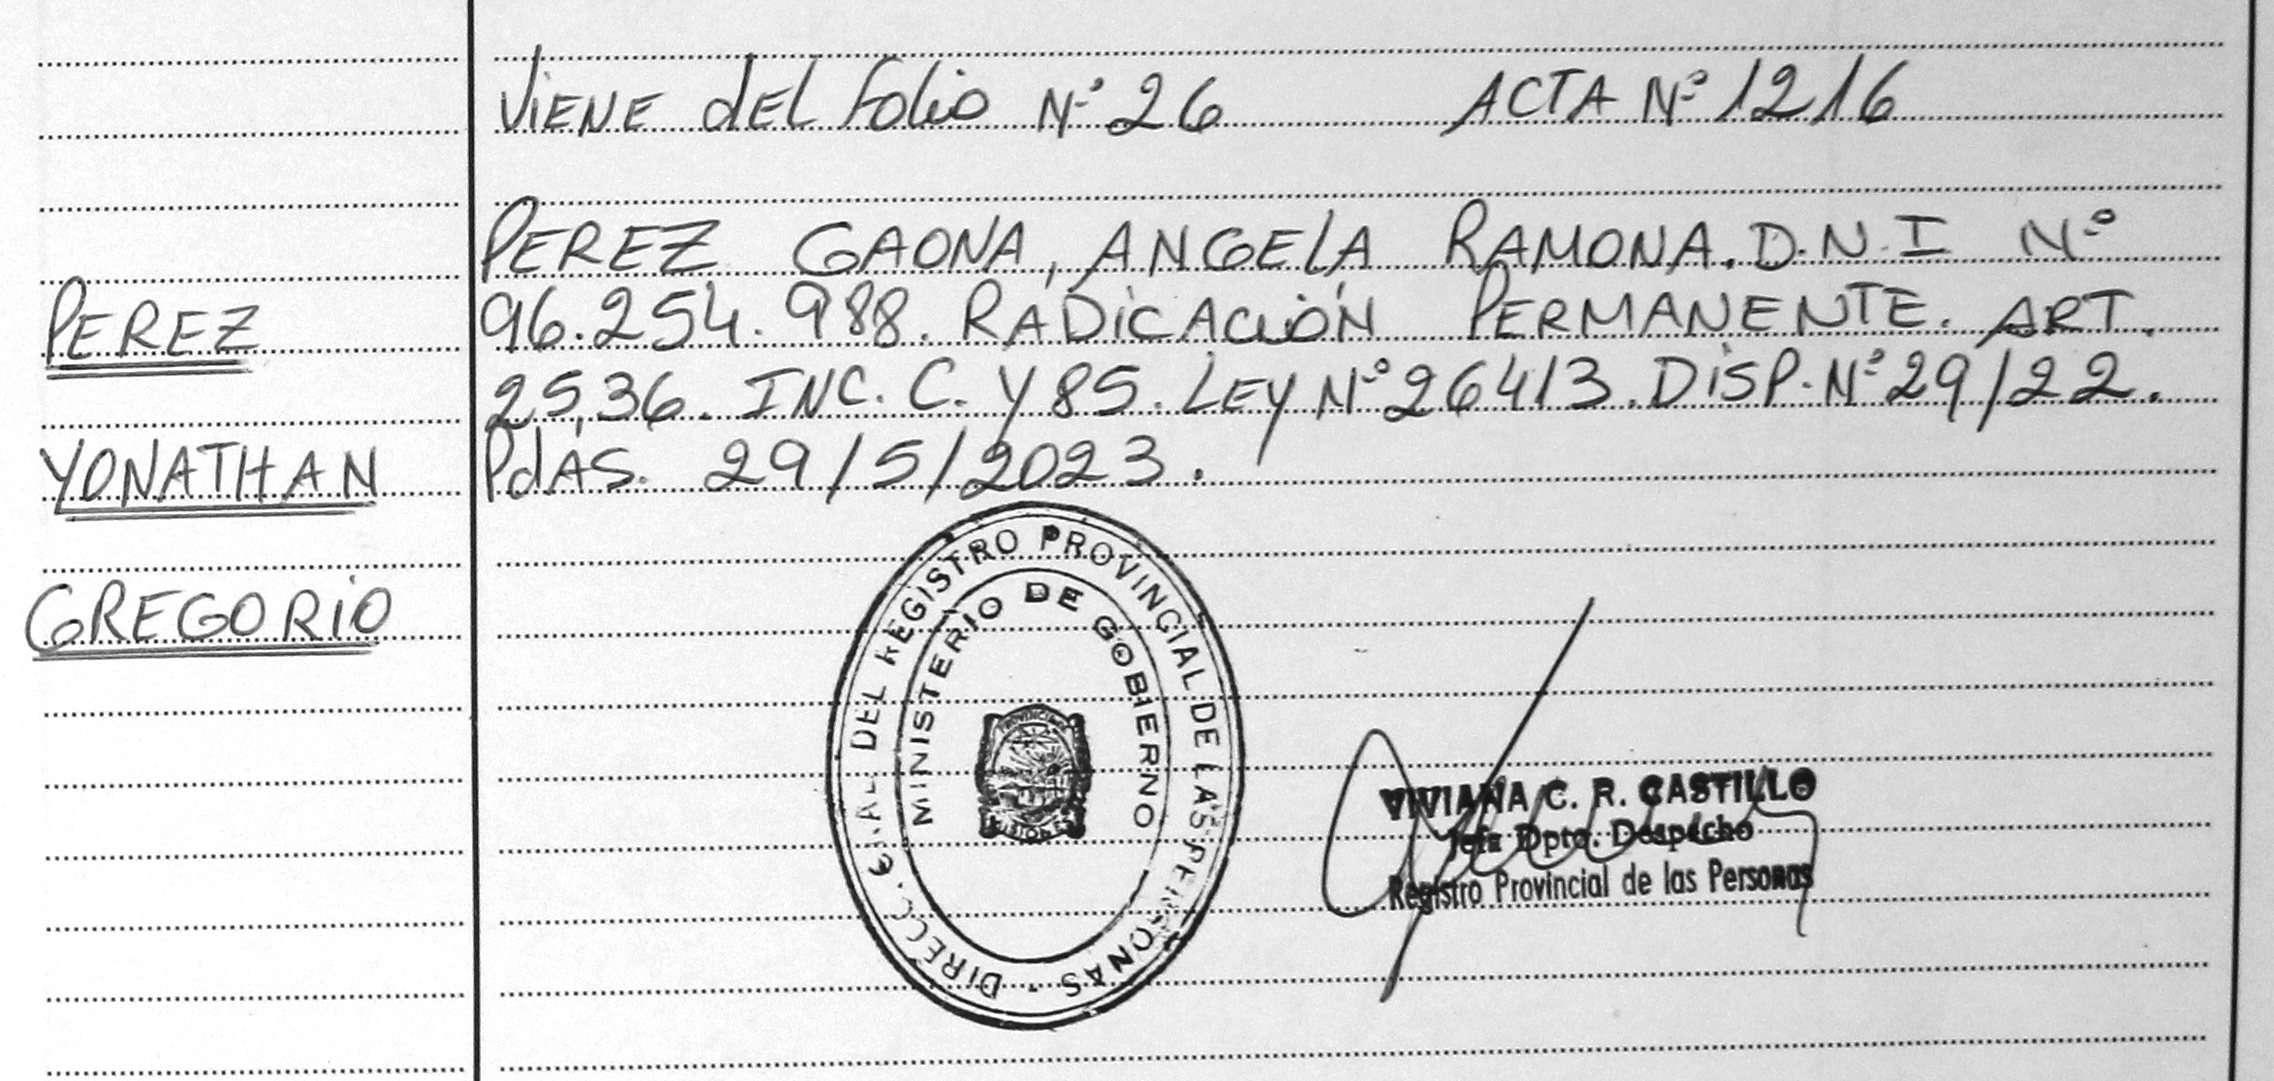 Viene del folio Nº 26 ACTA Nº 1216
PEREZ GAONA, ANGELA RAMONA. D.N.I Nº
96.254.988. RADICACIÓN PERMANENTE. ART.
25,36. INC. C. Y 85. LEY Nº 26413. DISP. Nº 29/22.
PdAS. 29/5/2023.
PEREZ
YONATHAN
GREGORIO
DIRECC. GRAL. DEL REGISTRO PROVINCIAL DE LAS PERSONAS -
MINISTERIO DE GOBIERNO
MISIONES
VIVIANA C. R. CASTILLO
Jefa Dpto. Despacho
Registro Provincial de las Personas